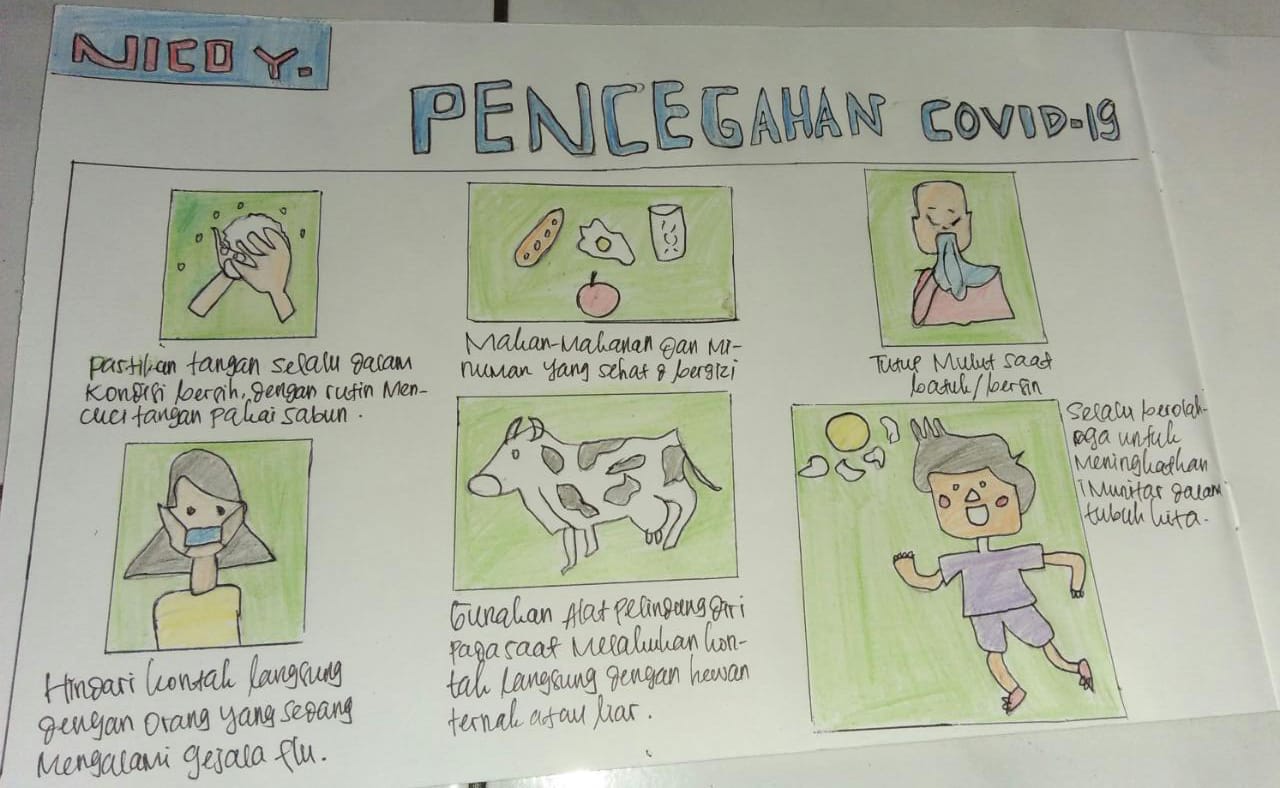 NICO Y.
PENCEGAHAN COVID-19
Pastikan tangan selalu dalam
kondisi bersih, dengan rutin men-
cuci tangan pakai sabun.
Makan-makanan dan mi-
numan yang sehat & bergizi
Tutup mulut saat
batuk/bersin
Hindari kontak langsung
dengan orang yang sedang
mengalami gejala flu.
Gunakan Alat pelindung diri
pada saat melakukan kon-
tak langsung dengan hewan
ternak atau liar.
Selalu berolah-
raga untuk
meningkatkan
imunitas dalam
tubuh kita.